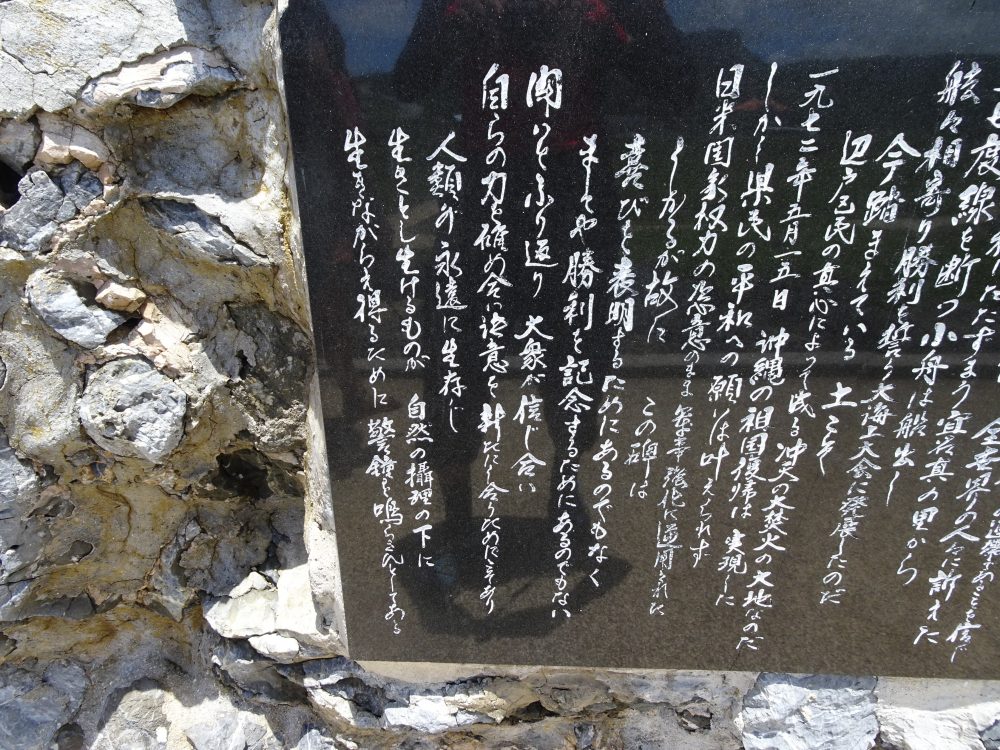 全世界の人々に訴えた
宜名真の里から
度線を断つ小舟は船出し
舷々相寄り勝利を誓う大海上大会に発展したのだ
今踏まえている 土こそ
辺戸区民の真心によって成る冲天の大焚火の大地なのだ
一九七二年五月一五日 沖縄の祖国復帰は 実現した
しかし県民の平和への願いは叶えられず
日米国家権力の恣意のまま 軍事強化に逆用された
しかるが故に この碑は
喜びを表明するためにあるのでもなく
ましてや勝利を記念するためにあるのでもない
闘いをふり返り 大衆が信じ合い
自らの力を確め合い決意を新たにし合うためにこそあり
人類が永遠に生存し
生きとし生けるものが 自然の攝理の下に
生きながらえ得るために 警鐘を鳴らさんとしてある